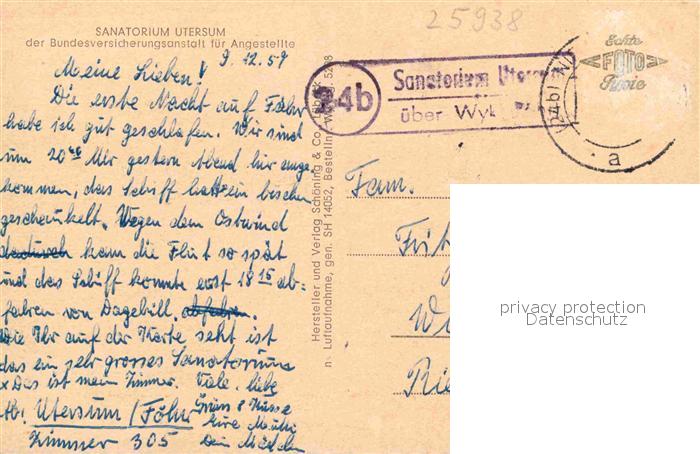 SANATORIUM UTERSUM
der Bundesversicherungsanstalt für Angestellte
9.12.59
Meine Lieben!
Die erste Nacht auf Föhr
habe ich gut geschlafen. Wir sind
um 20 Uhr gestern Abend hier ange
kommen, das Schiff hat ein bischen
geschaukelt. Wegen dem Ostwind
dadurch kam die Flut so spät
und das Schiff konnte erst 18 15 ab=
fahren von Dagebüll. abfahren.
Die Ihr auf der Karte seht ist
das ein sehr grosses Sanatorium
x Das ist mein Zimmer. Viele liebe
Grüsse & Küsse
Eure Mutti
Ab! Utersum/Föhr
Zimmer 305
Hersteller und Verlag Schöning & Co., Lübeck
n. Luftaufnahme, gen. SH 14052, Bestelln.
25938
24b
Sanatorium Utersum
über Wyk
(24b)
a
Echte
FOTO
Fam.
privacy protection
Datenschutz